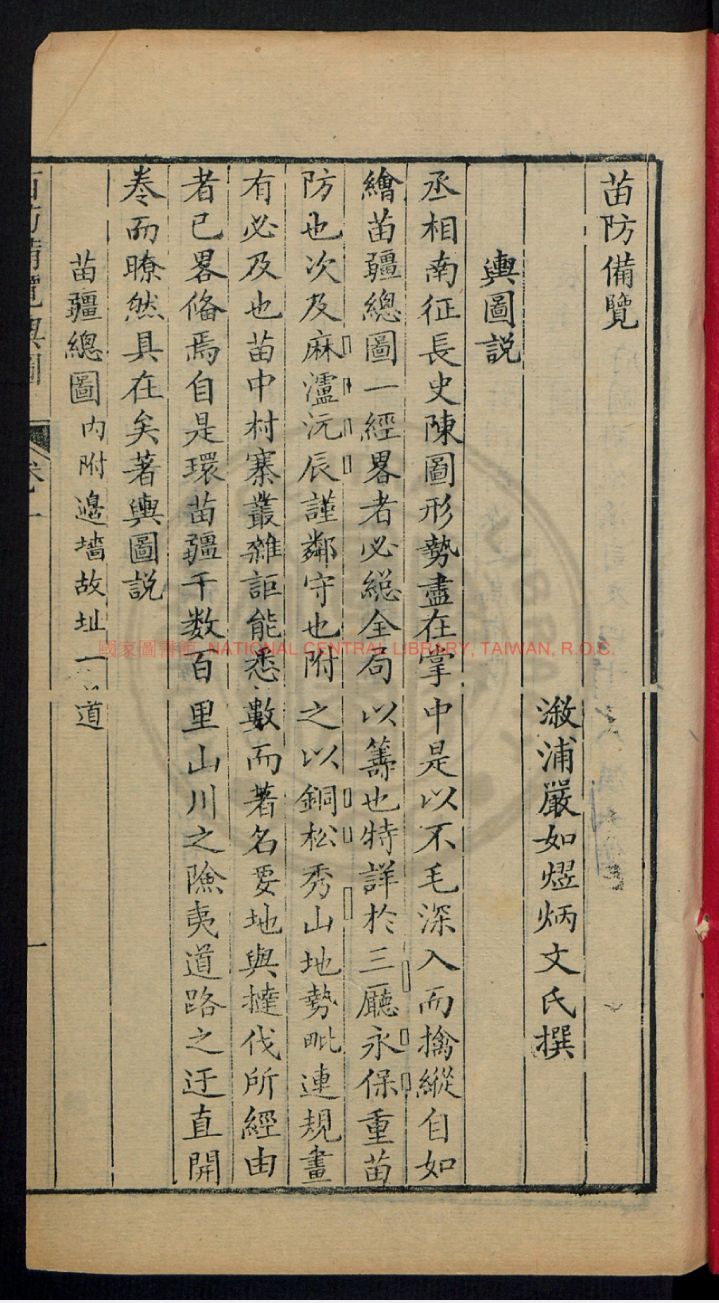 苗防備覽
溆浦嚴如熤炳文氏撰
輿圖説
丞相南征長史陳圖形勢盡在掌中是以不毛深入而擒縱自如
繪苗疆總圖一經畧者必総全局以籌也特詳於三厛永保重苗
防也次及麻瀘沅辰謹鄰守也附之以銅松秀山地勢毗連規畫
有必及也苗中村寨叢雜詎能悉數而著名要地與撻伐所經由
者已畧俻焉自是環苗疆千数百里山川之險夷道路之迂直開
卷而瞭然具在矣著輿圖説
苗疆總圖內附邊墙故址一道
苗防備覽輿圖 卷一 一
國家圖書館 NATIONAL CENTRAL LIBRARY, TAIWAN, R.O.C.